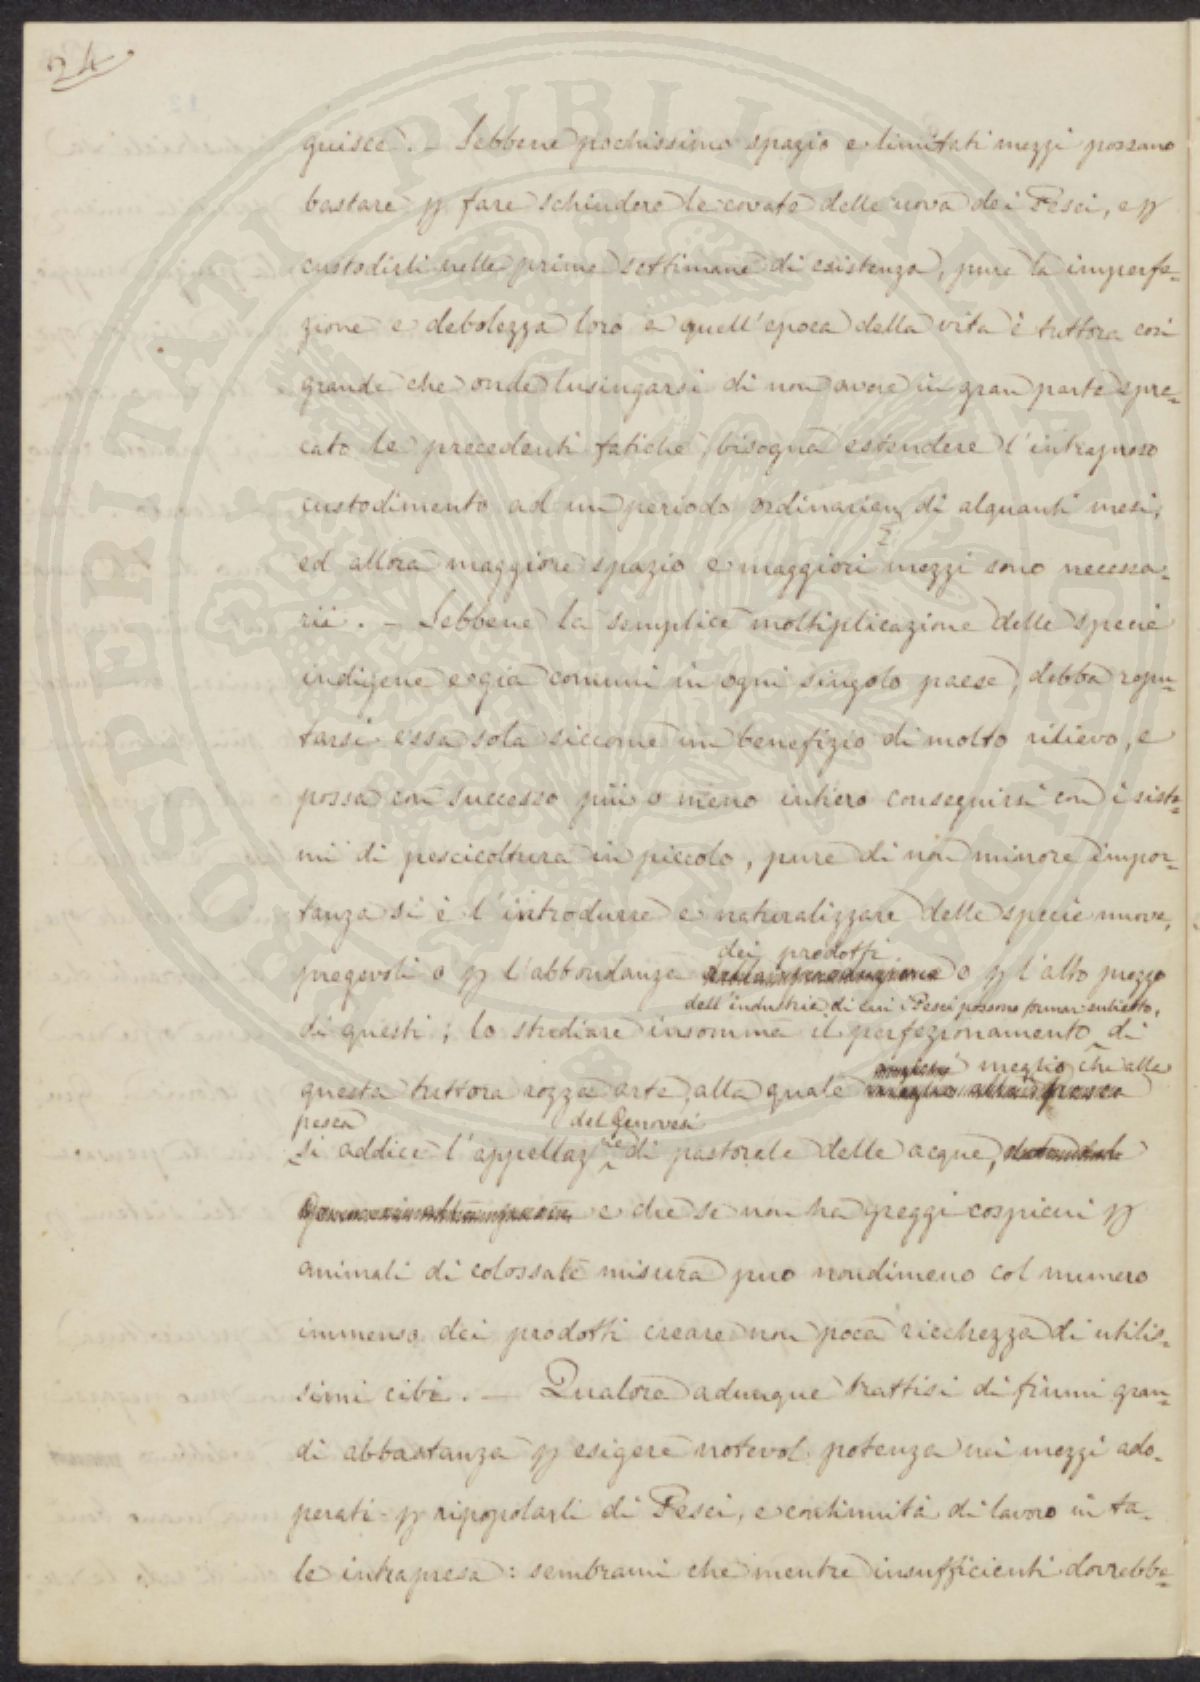 24
guisce. – Sebbene pochissimo spazio e limitati mezzi possano
bastare p fare schiudere le covate delle uova dei Pesci, e p
custodirli nelle prime settimane di esistenza, pure la imperfe-
zione e debolezza loro a quell'epoca della vita è tuttora così
grande che onde lusingarsi di non avere in gran parte spre-
cato le precedenti fatiche, bisogna estendere l'intrapreso
custodimento ad un periodo ordinariam di alquanti mesi,
ed allora maggiore spazio e maggiori mezzi sono necessa-
rii. – Sebbene la semplice moltiplicazione delle specie
indigene e già comuni in ogni singolo paese, debba repu-
tarsi essa sola siccome un benefizio di molto rilievo, e
possa con successo più o meno intiero conseguirsi con i siste-
mi di pescicoltura in piccolo, pure di non minore impor-
tanza si è l'introdurre e naturalizzare delle specie nuove,
dei prodotti
pregevoli o p l'abbondanza o p l'alto prezzo
dell'industria, di cui i Pesci possono formar subietto,
di questi; lo studiare insomma il perfezionamento di
meglio che alla
questa tuttora rozza arte, alla quale meglio alla pesca
pesca del Genovesi
si addice l'appellaz ne di pastorale delle acque,
e che se non ha greggi cospicui p
animali di colossale misura può nondimeno col numero
immenso dei prodotti creare non poca ricchezza di utilis-
simi cibi. – Qualora adunque trattisi di fiumi gran-
di abbastanza p esigere notevol potenza nei mezzi ado-
perati p ripopolarli di Pesci, e continuità di lavoro in ta-
le intrapresa: sembrami che mentre insufficienti dovrebbe-
PROSPERITATI PUBLICAE AUGENDAE